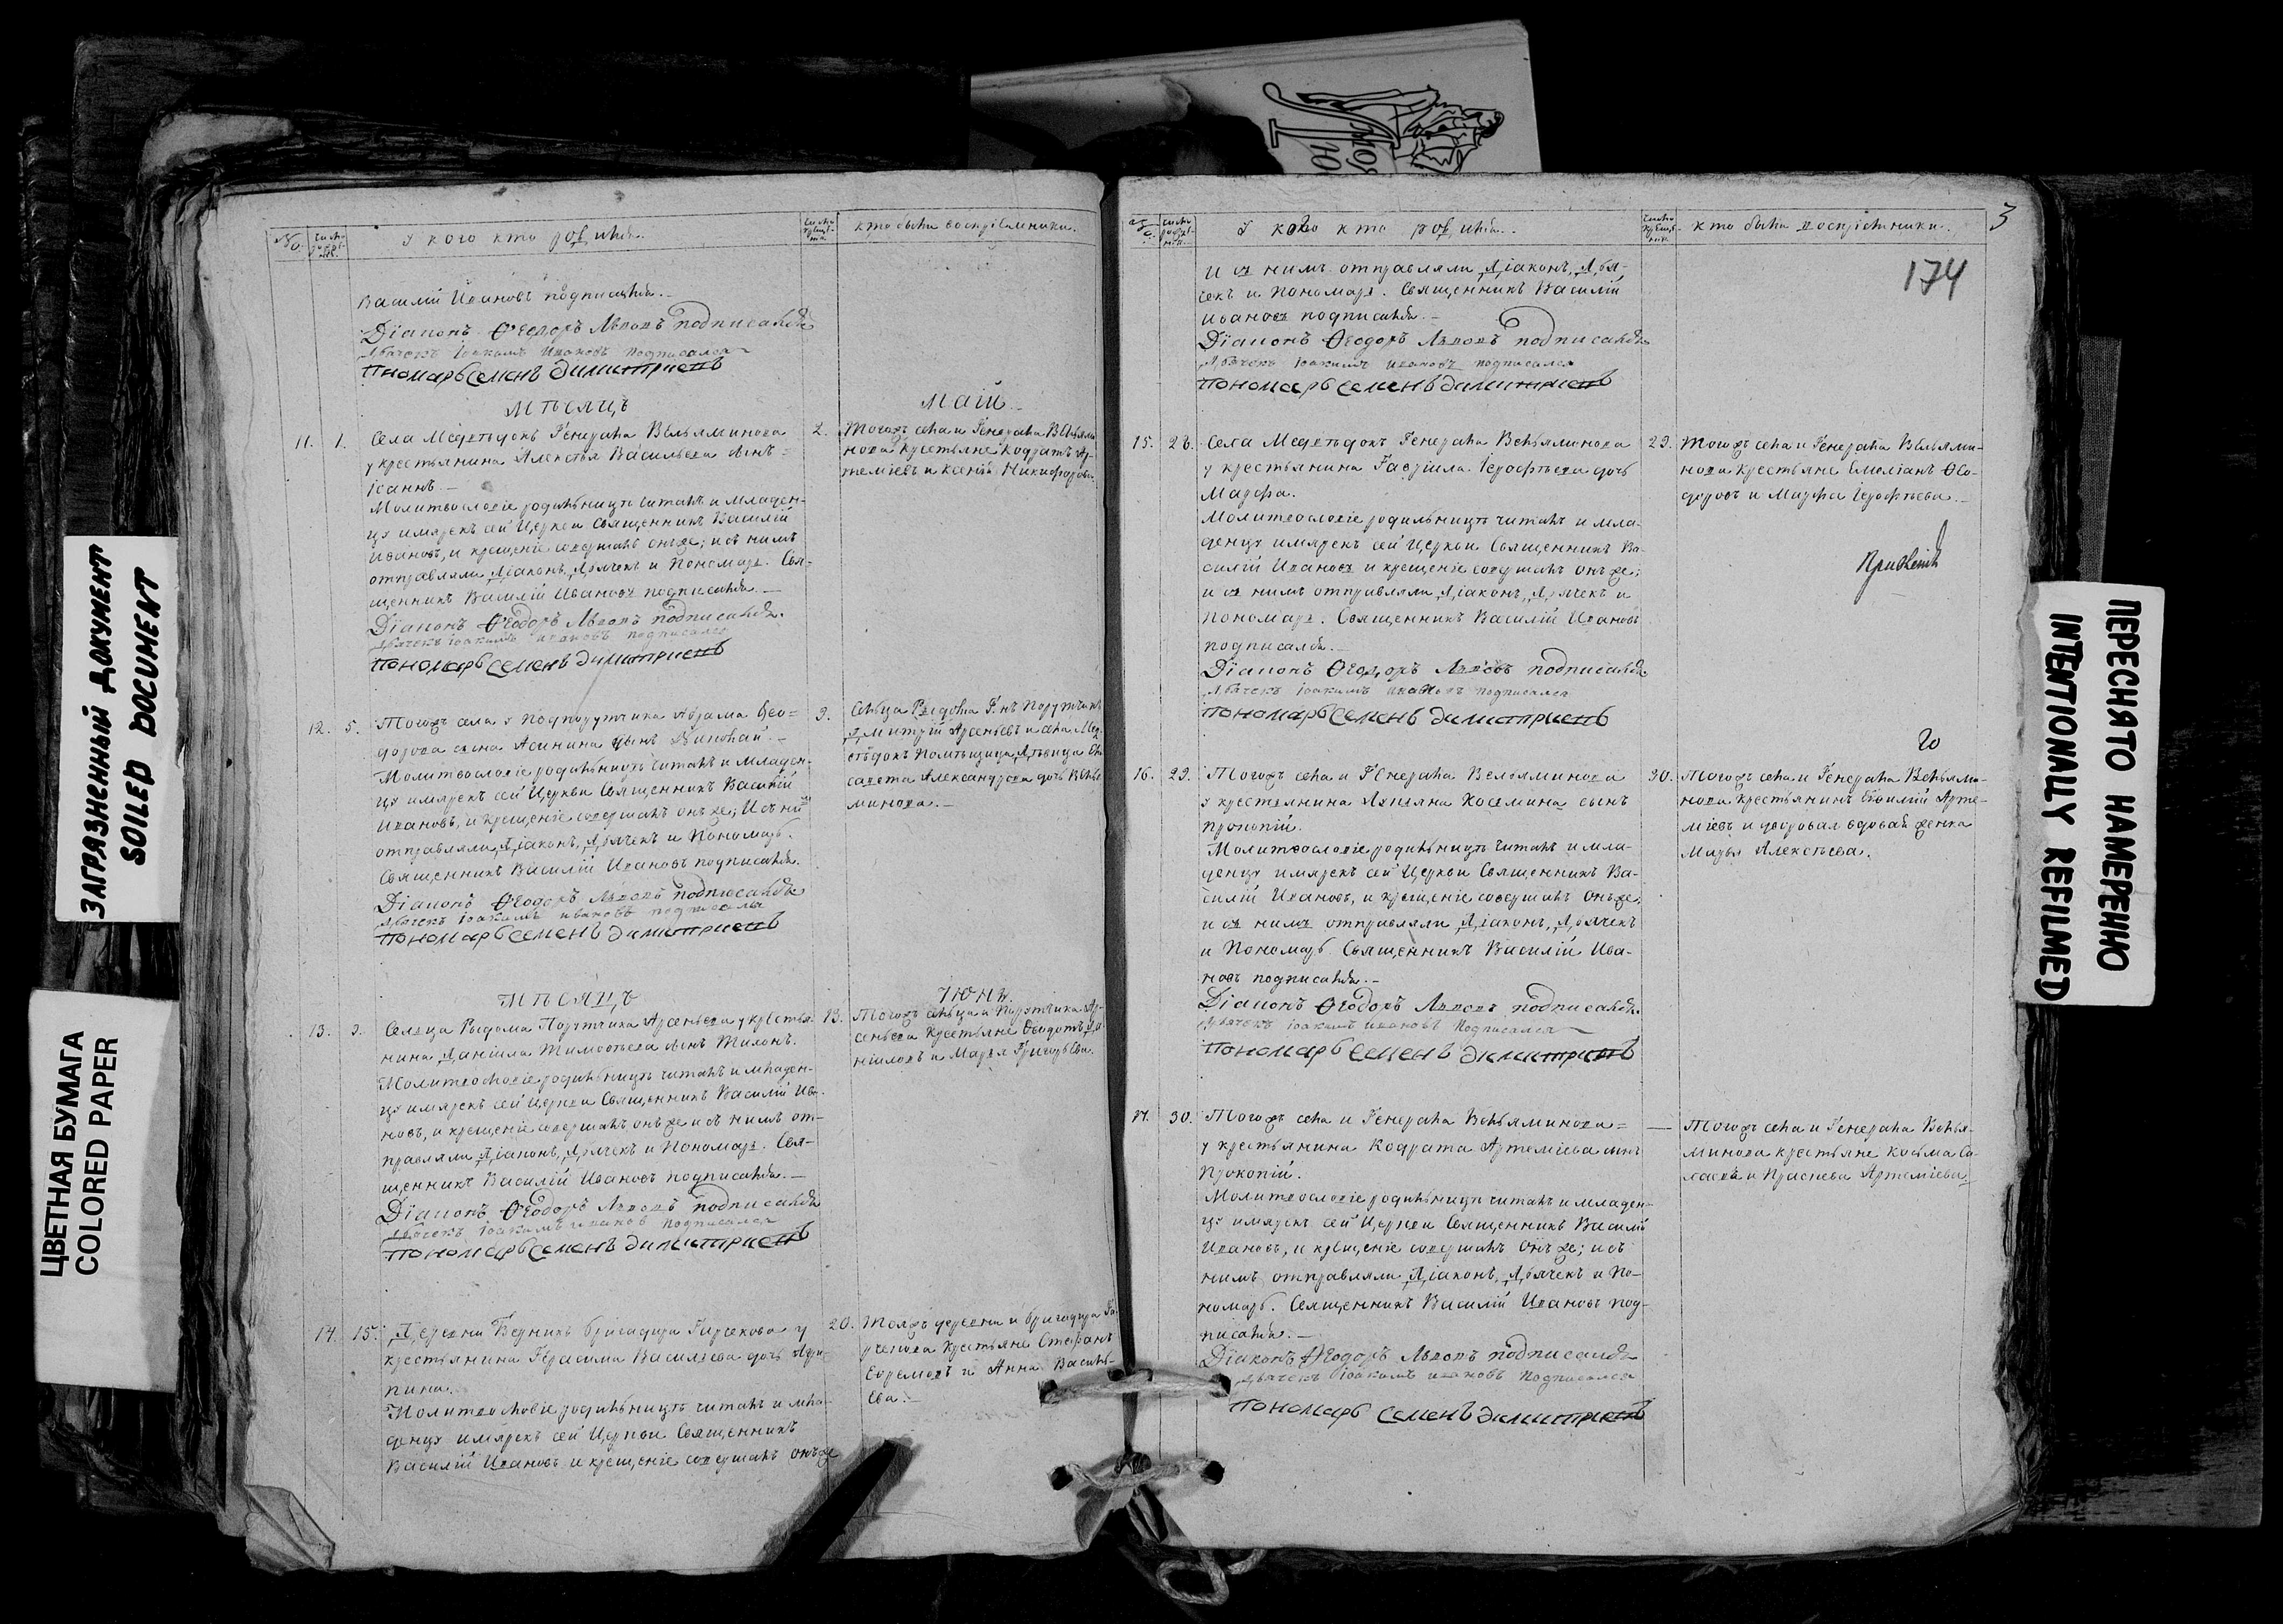 №.
число рожде-нія.
У кого кто родился.
число креще-нія.
кто были воспріемники.
Василій Ивановъ подписался.
Діаконъ Ѳеодоръ Львовъ подписался
Дьячекъ Іоакимъ Ивановъ подписался
Пономарь Семенъ Димитріевъ
Мѣсяцъ
Маій
11. 1. Села Медведокъ Генерала Вельяминова
у крестьянина Алексѣя Васильева сынъ
Іоаннъ.
Молитвословіе родильницѣ читалъ и младен-
цу имярекъ сей Церкви Священникъ Василій
Ивановъ, и крещеніе совершалъ онъ же; и съ нимъ
отправляли Діаконъ, Дьячекъ и Пономарь. Свя-
щенникъ Василій Ивановъ подписался.
Діаконъ Ѳеодоръ Львовъ подписался.
Дьячекъ Іоакимъ Ивановъ подписался
Пономарь Семенъ Димитріевъ
2. Тогожъ села и Генерала Вельями-
нова Крестьяне Кодратъ Ар-
теміевъ и Ксенія Никифорова.
12. 5. Тогожъ села у Подпорутчика Абрама Ѳео-
дорова сына сынъ Николай.
Молитвословіе родильницѣ читалъ и младен-
цу имярекъ сей Церкви Священникъ Василій
Ивановъ, и крещеніе совершалъ онъ же; И съ нимъ
отправляли, Діаконъ, Дьячекъ и Пономарь.
Священникъ Василій Ивановъ подписался.
Діаконъ Ѳеодоръ Львовъ подписался
Дьячекъ Іоакимъ Ивановъ подписался
Пономарь Семенъ Димитріевъ
9. Сельца Г.нъ Порутчикъ
Дмитрій Арсеньевъ и села Мед-
ведокъ Помѣщица, Дѣвица Ели-
савета Александрова дочь Велья-
минова.
Мѣсяцъ
Іюнь.
13. 9. Сельца Порутчика Арсеньева у крестья-
нина Даніила Тимофеева сынъ Тихонъ.
Молитвословіе родильницѣ читалъ и младен-
цу имярекъ сей Церкви Священникъ Василій Ива-
новъ, и крещеніе совершалъ онъ же и съ нимъ от-
правляли Діаконъ, Дьячекъ и Пономарь. Свя-
щенникъ Василій Ивановъ подписался.
Діаконъ Ѳеодоръ Львовъ подписался
Дьячекъ Іоакимъ Ивановъ подписался
Пономарь Семенъ Димитріевъ
13. Тогожъ сельца и Порутчика Ар-
сеньева Крестьяне Ѳеодотъ Да-
ніиловъ и Марѳа Григорьева.
14. 15. Деревни бригадира у
крестьянина Герасима Васильева дочь Агри-
пина.
Молитвословіе родильницѣ читалъ и мла-
денцу имярекъ сей Церкви Священникъ
Василій Ивановъ и крещеніе совершалъ онъ же
20. Тояжъ деревни и бригадира
Крестьяне Стефанъ
Ефремовъ и Анна Василь-
ева.
№.
число рожде-нія.
У кого кто родился.
число креще-нія.
кто были воспріемники.
3
174
и съ нимъ отправляли Діаконъ, Дья-
чекъ и Пономарь. Священникъ Василій
Ивановъ подписался.
Діаконъ Ѳеодоръ Львовъ подписался
Дьячекъ Іоакимъ Ивановъ подписался
Пономарь Семенъ Димитріевъ
15. 28. Села Медведокъ Генерала Вельяминова
у крестьянина Гавріила Іероѳеева дочь
Марѳа.
Молитвословіе родильницѣ читалъ и мла-
денцу имярекъ сей Церкви Священникъ Ва-
силій Ивановъ и крещеніе совершалъ онъ же;
и съ нимъ отправляли Діаконъ, Дьячекъ и
Пономарь. Священникъ Василій Ивановъ
подписался.
Діаконъ Ѳеодоръ Львовъ подписался
Дьячекъ Іоакимъ Ивановъ подписался
Пономарь Семенъ Димитріевъ
29. Тогожъ села и Генерала Вельями-
нова Крестьяне Емеліанъ Ѳео-
доровъ и Марѳа Іероѳеева.
16. 29. Тогожъ села и Генерала Вельяминова
у крестьянина Козмина сынъ
Прокопій.
Молитвословіе родильницѣ читалъ и мла-
денцу имярекъ сей Церкви Священникъ Ва-
силій Ивановъ, и крещеніе совершалъ онъ же;
и съ нимъ отправляли Діаконъ, Дьячекъ
и Пономарь. Священникъ Василій Ива-
новъ подписался.
Діаконъ Ѳеодоръ Львовъ подписался.
Дьячекъ Іоакимъ Ивановъ Подписался
Пономарь Семенъ Димитріевъ
30. Тогожъ села и Генерала Вельями-
нова Крестьянинъ Арте-
міевъ и дворовая вдовая женка
Марья Алексѣева.
17. 30. Тогожъ села и Генерала Вельяминова
у крестьянина Кодрата Артеміева сынъ
Прокопій.
Молитвословіе родильницѣ читалъ и младен-
цу имярекъ сей Церкви Священникъ Василій
Ивановъ, и крещеніе совершалъ онъ же; и съ
нимъ отправляли Діаконъ, Дьячекъ и По-
номарь. Священникъ Василій Ивановъ под-
писался.
Діаконъ Ѳеодоръ Львовъ подписался
Дьячекъ Іоакимъ Ивановъ Подписался
Пономарь Семенъ Димитріевъ
Тогожъ села и Генерала Велья-
минова крестьяне Косьма Са-
и Артеміева.
ЗАГРЯЗНЕННЫЙ ДОКУМЕНТ
SOILED DOCUMENT
ЦВЕТНАЯ БУМАГА
COLORED PAPER
ПЕРЕСНЯТО НАМЕРЕННО
INTENTIONALLY REFILMED